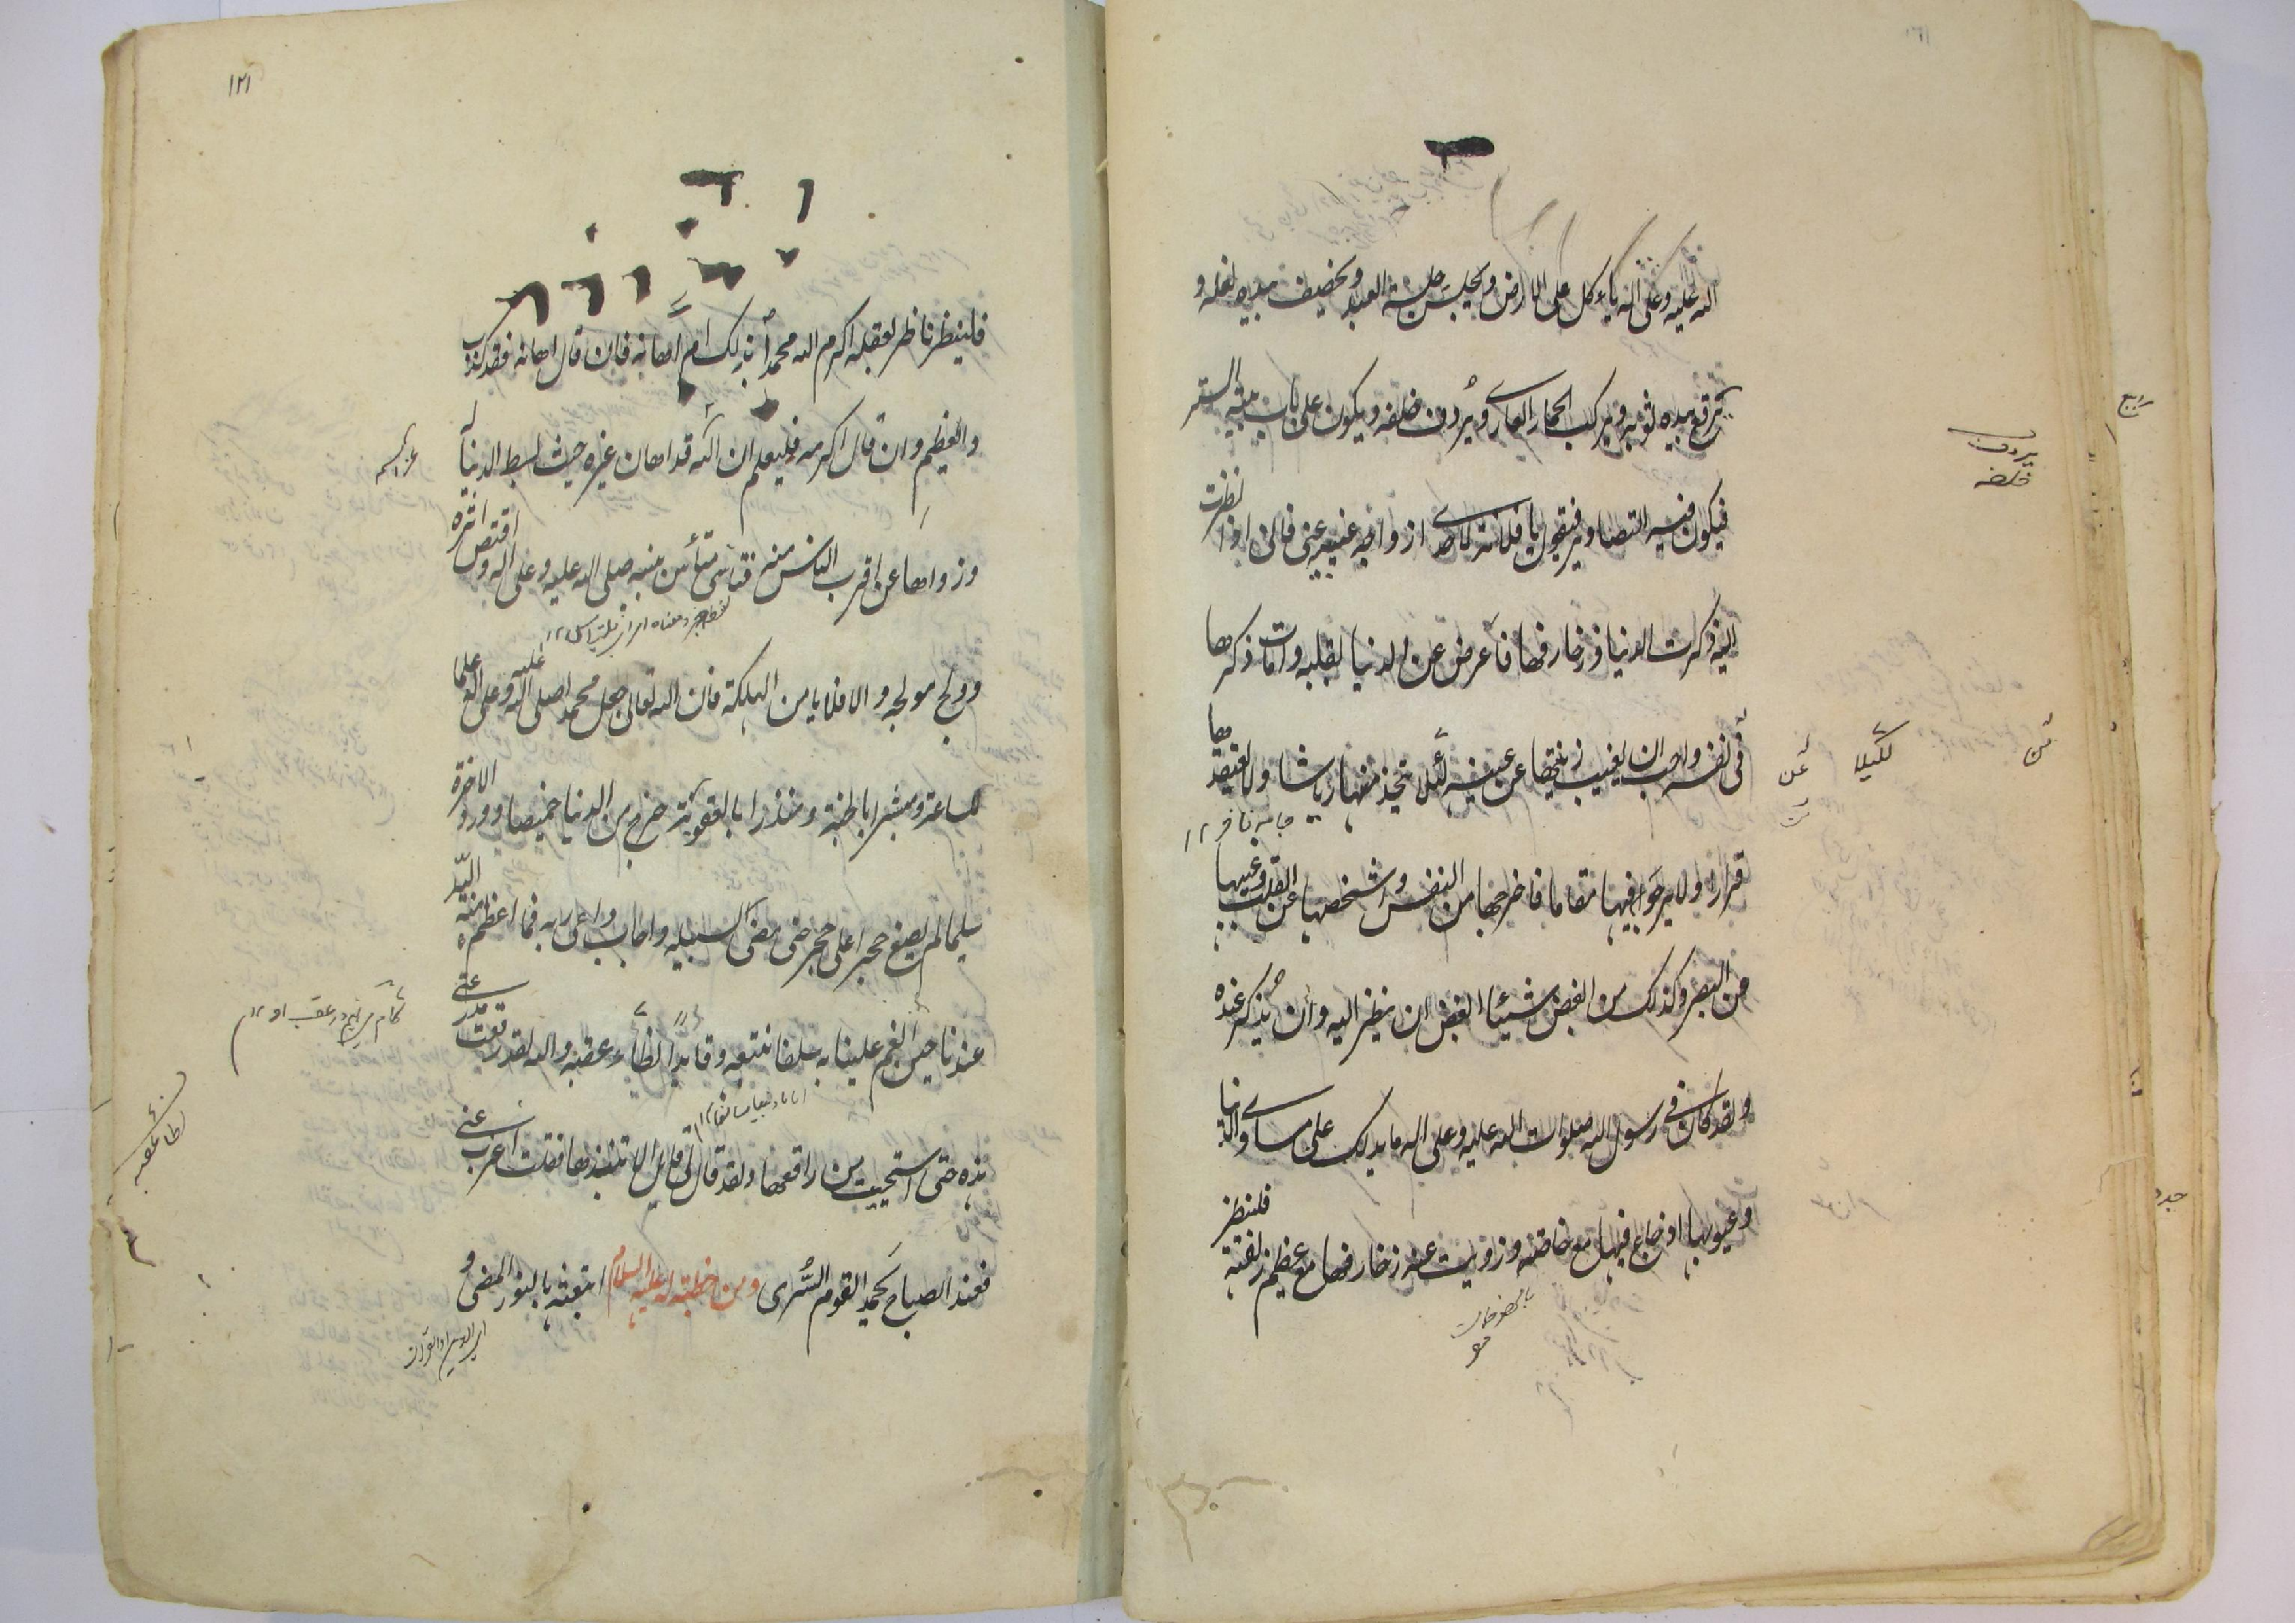 الله عليه وعلى اله ياءكل على الارض ويجلس جلسة العبد ويخصف بيده نعله و
يرقع بيده ثوبه ويركب الحمار العارى ويُردف خلفه ويكون على باب بيته الستر
فيكون فيه التصاوير فيقول يا فلانة لاحدى ازواجه غيبيه عنى فانى اذا نظرت
اليه ذكرت الدنيا وزخارفها فاعرض عن الدنيا بقلبه وامات ذكرها
فى نفسه واحب ان يغيب زينتها عن عينه لئلا يتخذ منها رياشا ولا يعتقدها
قرارا ولا يرجوا فيها مقاما فاخرجها من النفس واشخصها عن القلب وغيبها
عن البصر وكذلك من ابغض شيئا ابغض ان ينظر اليه وان يُذكر عنده
ولقد كان فى رسول الله صلوات الله عليه وعلى اله ما يدلك على مساوى الدنيا
وعيوبها اذ جاع فيها مع خاصته وزويت عنه زخارفها مع عظيم زلفته فلينظر
يردف
خلفه
لكيلا
عن
من
١٢١
فلينظر ناظر بعقله اكرم الله محمدا بذلك ام اهانه فان قال اهانه فقد كذب
والعظيم وان قال اكرمه فليعلم ان الله قد اهان غيره حيث بسط الدنيا له
وزواها عن اقرب الناس منه فتاسى متأس بنبيه صلى الله عليه وعلى اله واقتص اثره
وولج مولجه والا فلا يامن الهلكة فان الله تعالى جعل محمدا صلى الله عليه وعلى اله علما
للساعة ومبشرا بالجنة ومنذرا بالعقوبة خرج من الدنيا خميصا وورد الاخرة
سليما لم يضع حجرا على حجر حتى مضى لسبيله واجاب داعى ربه فما اعظم منة الله
عندنا حين انعم علينا به سلفا نتبعه وقايدا نطاء عقبه والله لقد رقعت مدرعتى
هذه حتى استحييت من راقعها ولقد قال لى قايل الا تنبذها فقلت اغرب عنى
فعند الصباح يحمد القوم السُّرى ومن خطبة له عليه السلام ابتعثه بالنور المضى و